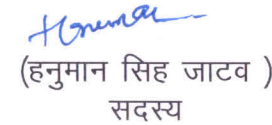 (हनुमान सिंह जाटव )
सदस्य